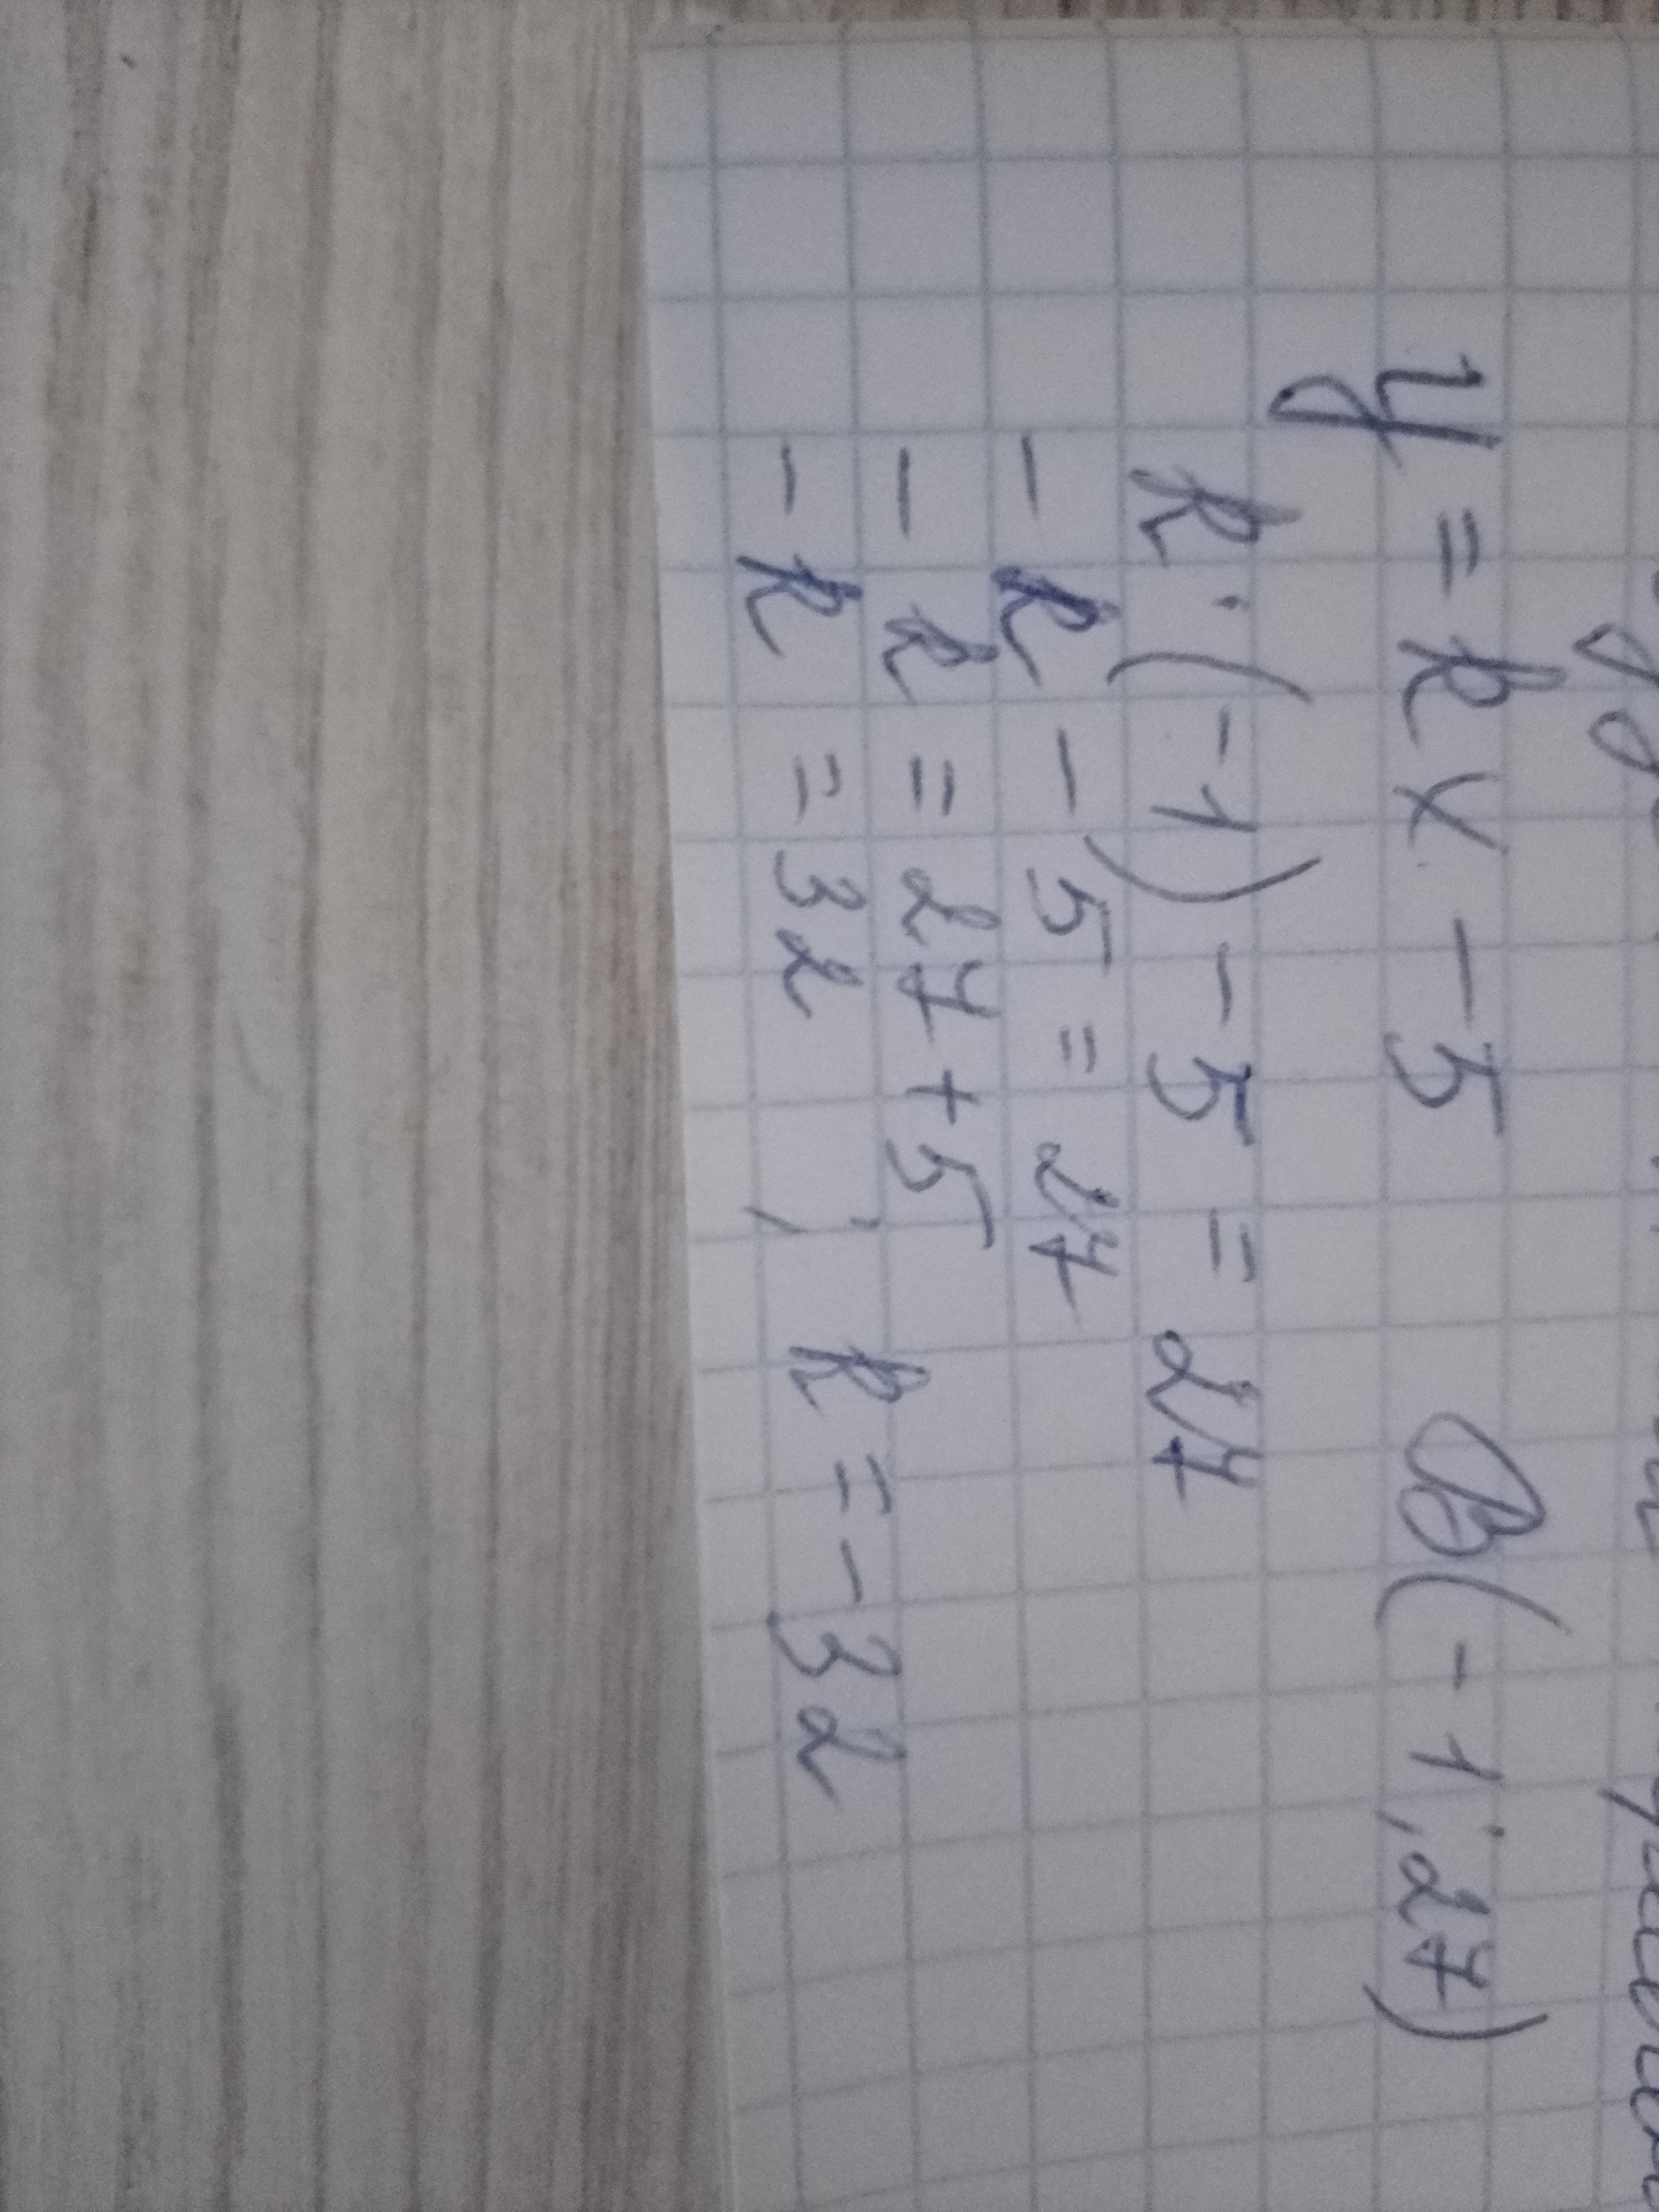 y = kx - 5 B(-1; 27)
k · (-1) - 5 = 27
- k - 5 = 27
- k = 27 + 5
- k = 32 ; k = -32